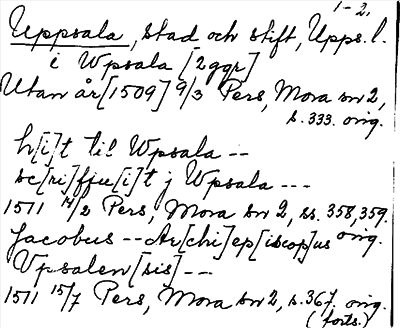 1-2.
Uppsala, stad och stift, Upps. l.
i Wpsala [2ggr]
Utan år [1509] 9/3 Pers, Mora sn 2,
s. 333. orig.
h[i]t til Wpsala --
sc[ri]ffju[i]t j Wpsala ---
1511 14/2 Pers, Mora sn 2, ss. 358, 359.
orig.
Jacobus -- Ar[chi]ep[iscop]us
Vpsalen[sis] --
1511 15/7 Pers, Mora sn 2, s. 367. orig.
(forts.)